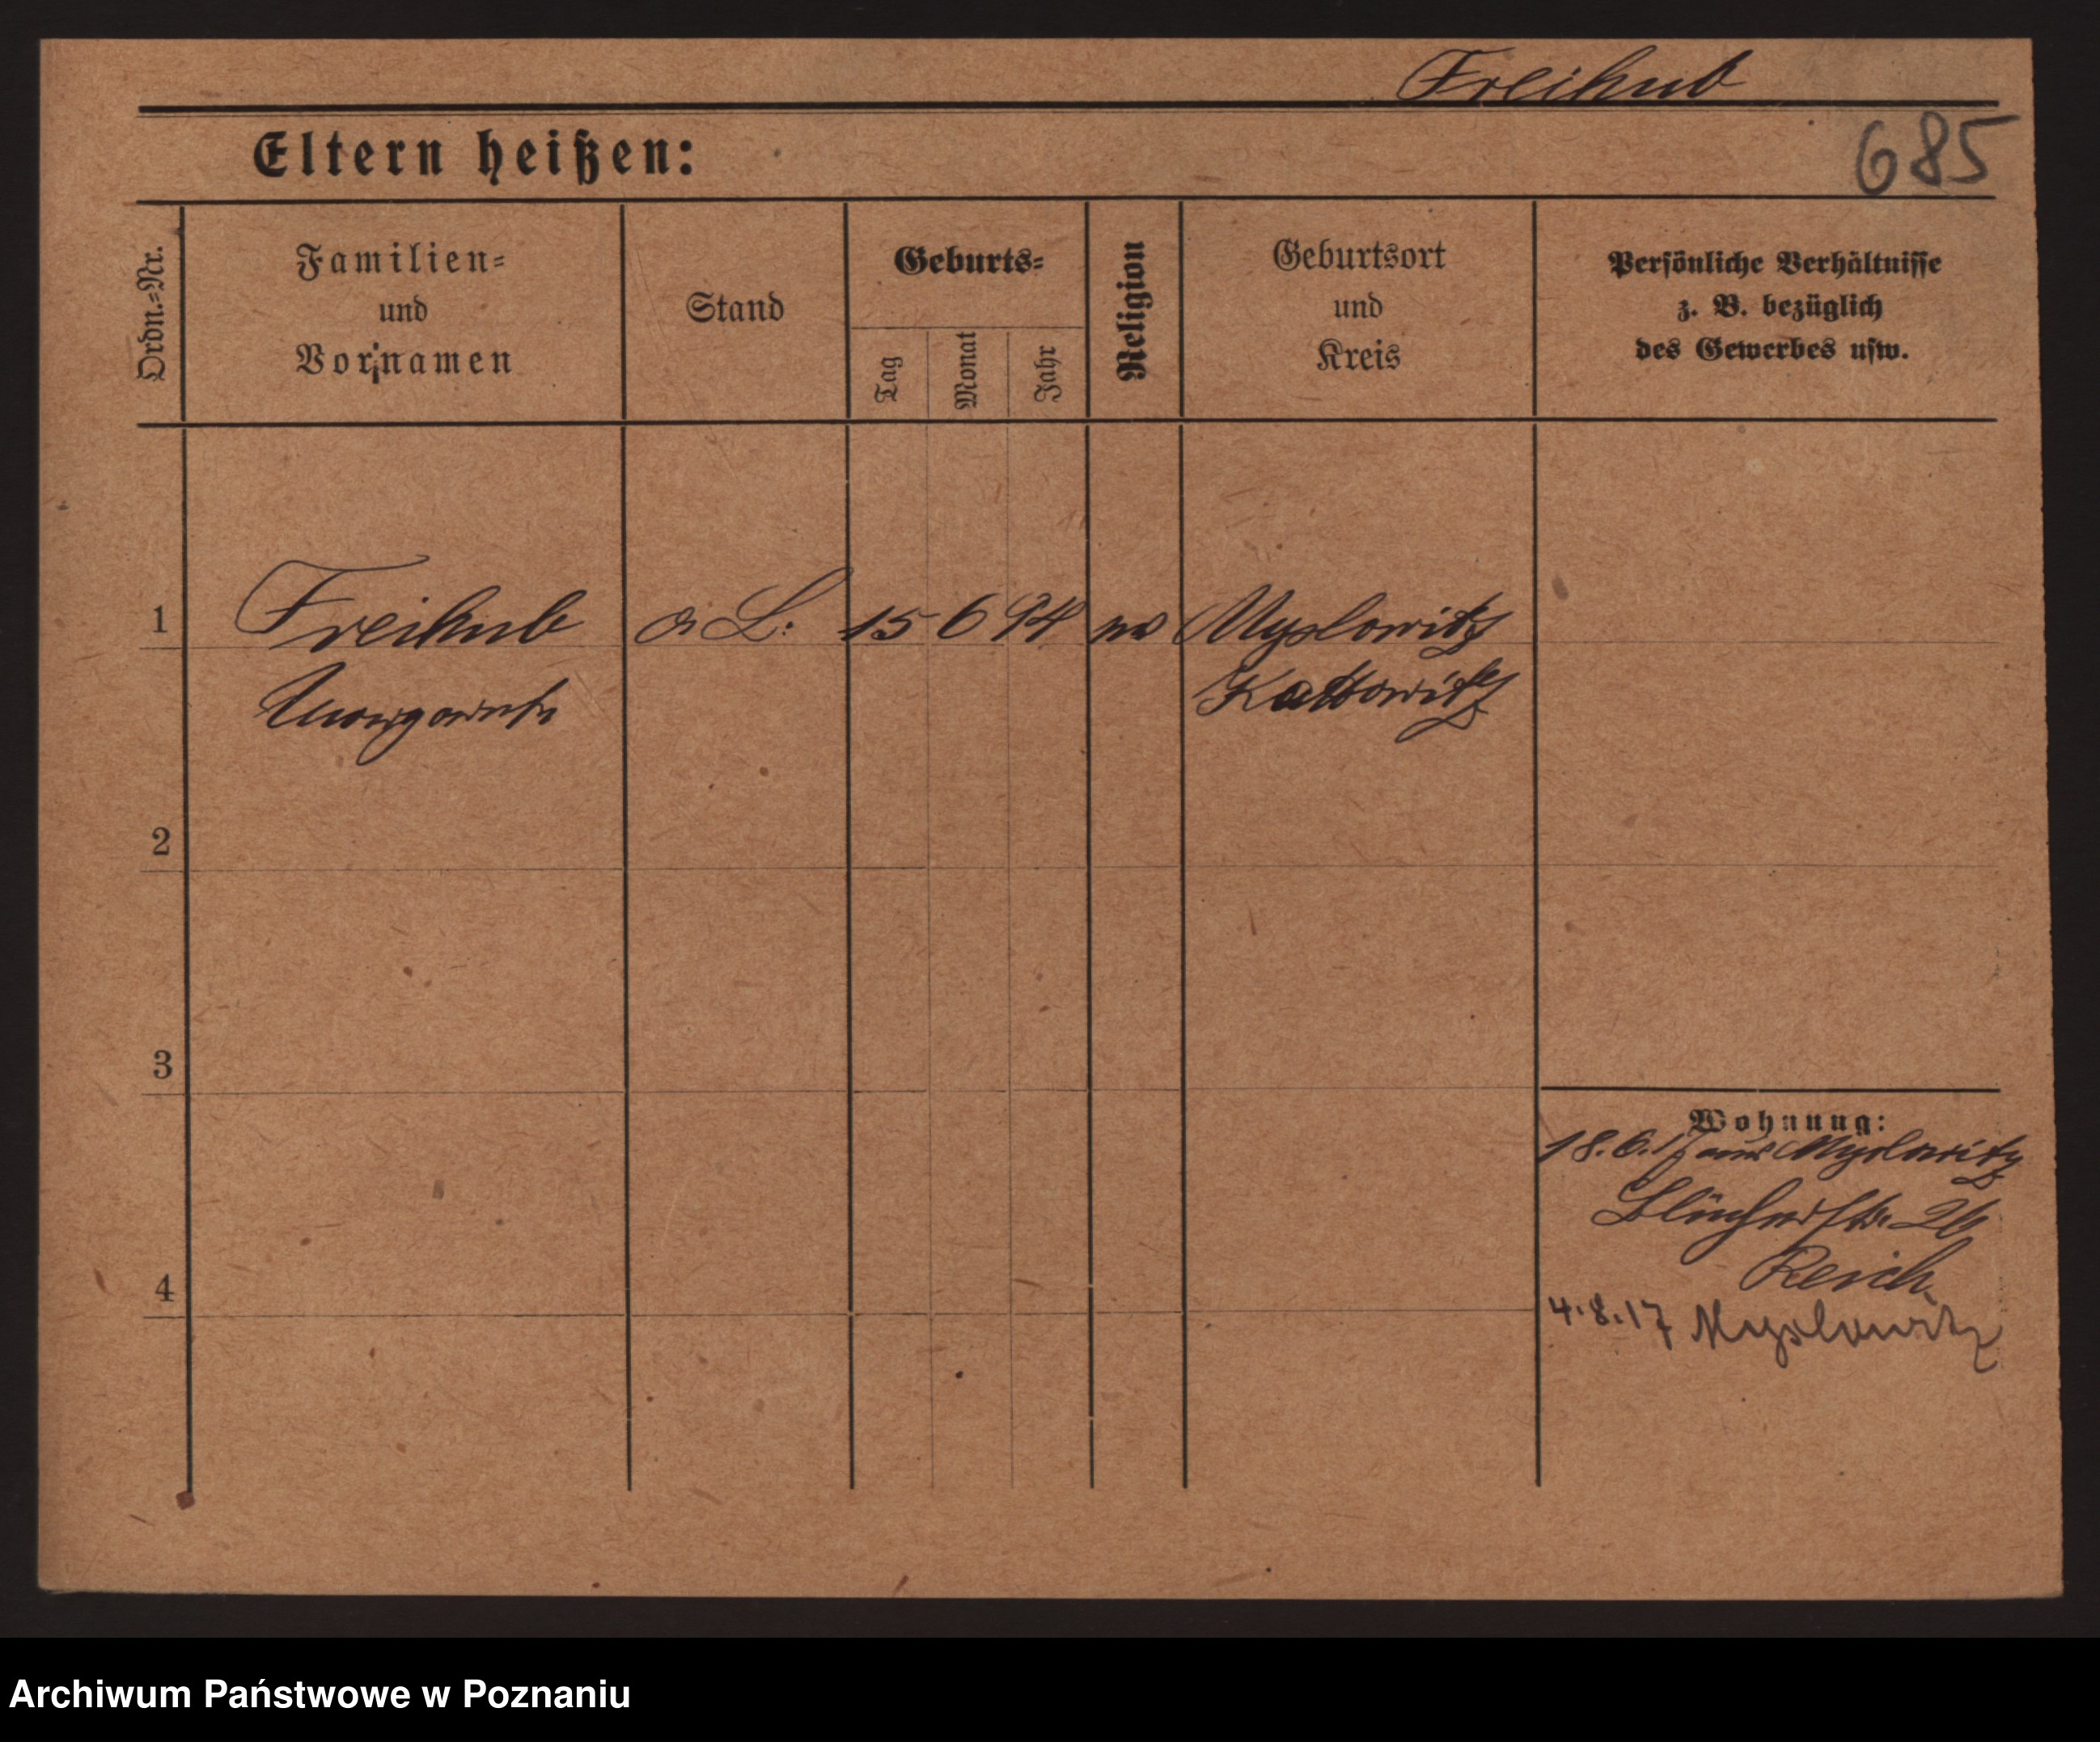 Freihub
Eltern heißen:
685
Ordn.=Nr.
Familien=
und
Vornamen
Stand
Geburts=
Tag
Monat
Jahr
Religion
Geburtsort
und
Kreis
Persönliche Verhältnisse
z. B. bezüglich
des Gewerbes usw.
1
Freihub
15 6 94
Myslowitz
Margarete
Kattowitz
2
3
4
Wohnung:
18.6.17 aus Myslowitz
Blücherstr. 26
Reich
4.8.17 Myslowitz
Archiwum Państwowe w Poznaniu